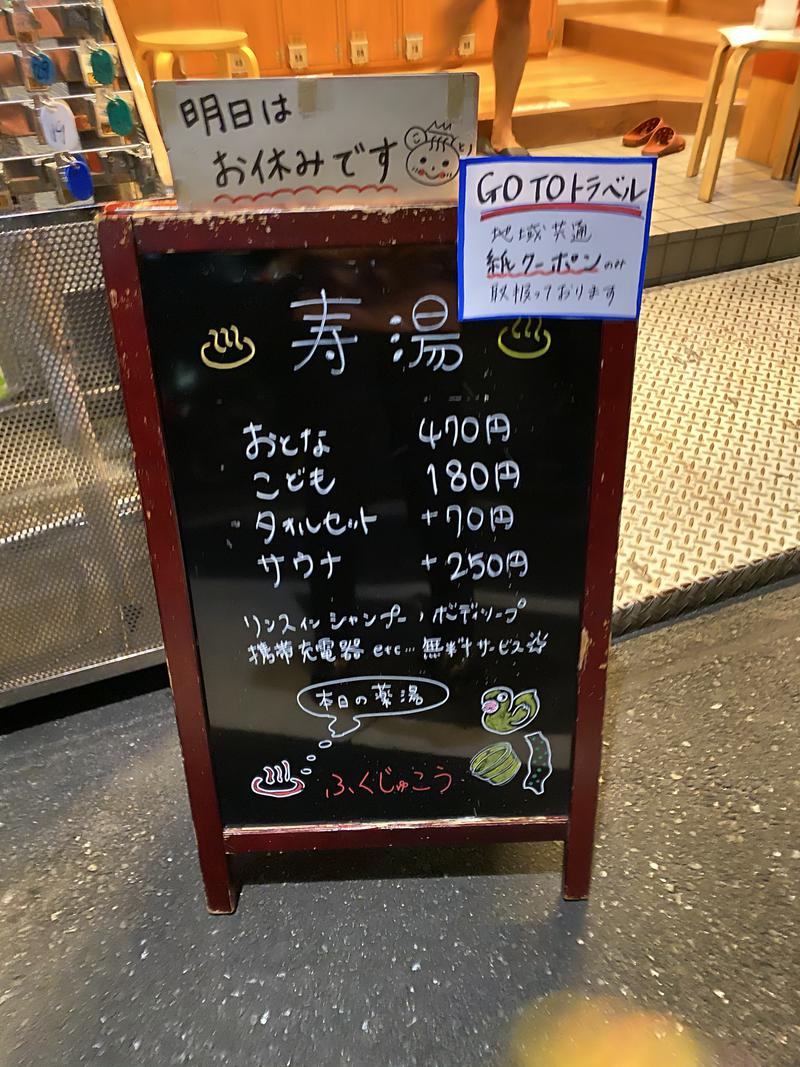 明日は
お休みです
GO TOトラベル
地域共通
紙クーポンのみ
取扱っております
寿湯
おとな 470円
こども 180円
タオルセット +70円
サウナ +250円
リンスインシャンプー、ボディソープ
携帯充電器 etc… 無料サービス
本日の薬湯
ふくじゅこう